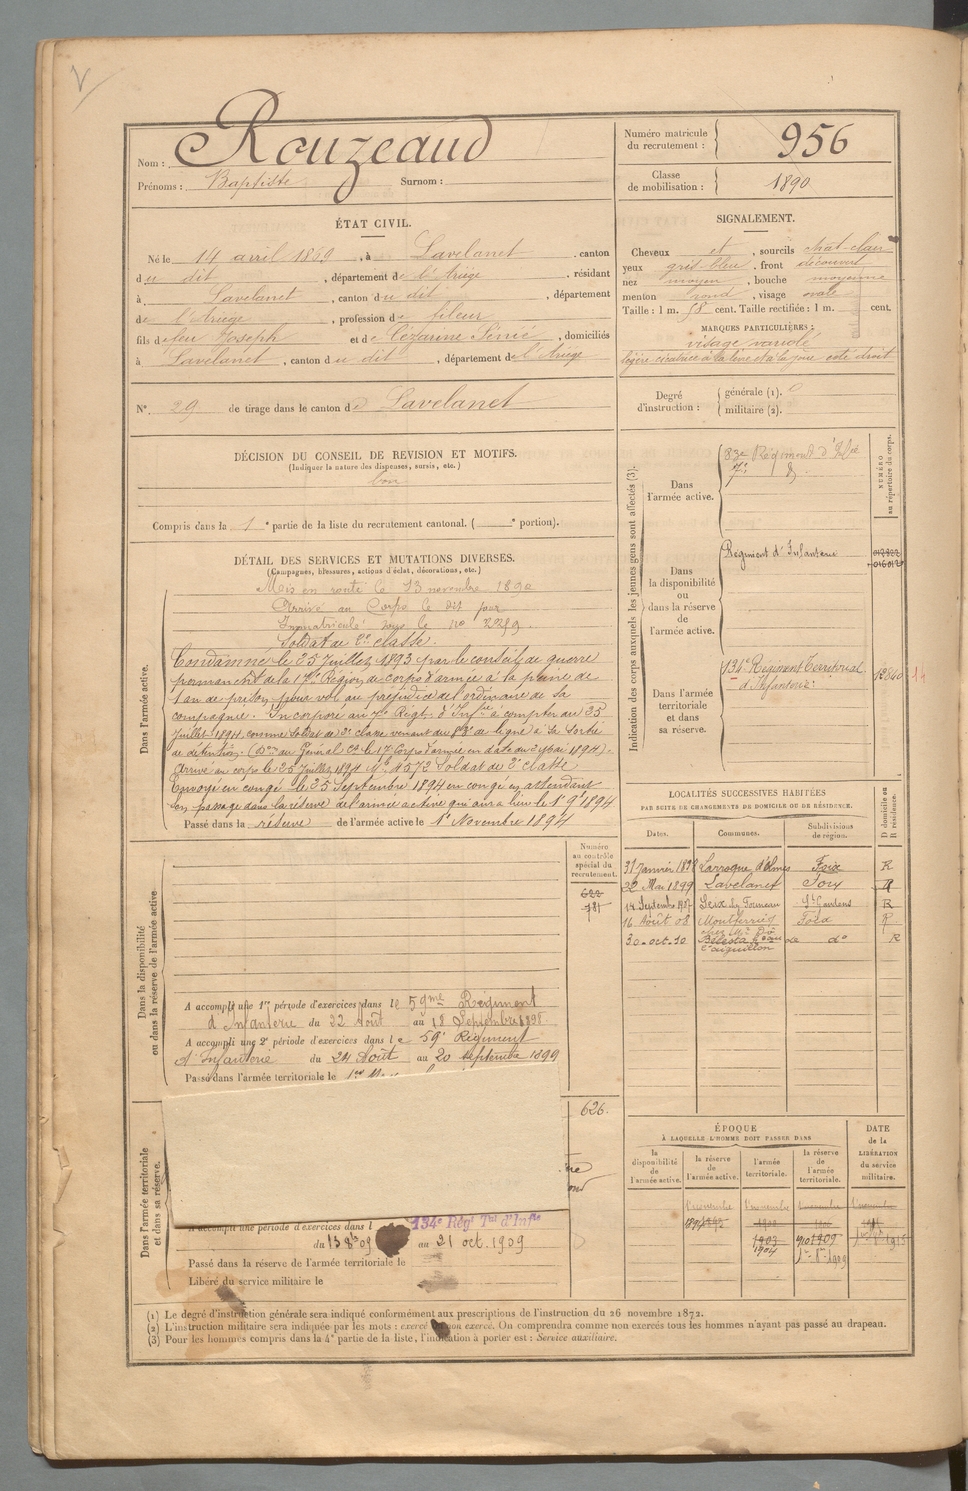 Nom : Rouzeaud
Prénoms : Baptiste Surnom :
Numéro matricule du recrutement : 956
Classe de mobilisation : 1890
ÉTAT CIVIL.
Né le 14 avril 1869, à Lavelanet, canton
du dit, département de l'Ariège, résidant
à Lavelanet, canton du dit, département
de l'Ariège, profession de fileur
fils de feu Joseph et de Cézanne Sénié, domiciliés
à Lavelanet, canton du dit, département de l'Ariège
N°. 29 de tirage dans le canton de Lavelanet
SIGNALEMENT.
Cheveux et, sourcils chat-clair
yeux gris-bleu, front découvert
nez moyen, bouche moyenne
menton rond, visage ovale
Taille : 1 m. 58 cent. Taille rectifiée : 1 m. cent.
MARQUES PARTICULIÈRES :
visage variolé
légère cicatrice à la lèvre et à la joue coté droit
Degré d'instruction : générale (1). 0
militaire (2).
DÉCISION DU CONSEIL DE REVISION ET MOTIFS.
(Indiquer la nature des dispenses, sursis, etc.)
bon
Compris dans la 1e partie de la liste du recrutement cantonal. ( e portion).
DÉTAIL DES SERVICES ET MUTATIONS DIVERSES.
(Campagnes, blessures, actions d'éclat, décorations, etc.)
Dans l'armée active.
Mis en route le 13 novembre 1890
Arrivé au Corps le dit jour
Immatriculé sous le no 2259.
Soldat de 2e classe.
Condamné le 25 Juillet 1893 par le conseil de guerre
permanent de la 17e Région de corps d'armée à la peine de
1 an de prison pour vol au préjudice de l'ordinaire de sa
compagnie. Incorporé au 7e Régt. d'Infrie à compter du 25
Juillet 1894 comme soldat de 2e classe venant du 83e de ligne à sa sortie
de détention. (Don du Général Ct le 17e Corps d'armée en date du 2 Mai 1894).
Arrivé au corps le 25 Juillet 1894 No 4572 Soldat de 2e classe
Envoyé en congé le 25 Septembre 1894 en congé en attendant
son passage dans la réserve de l'armée active qui aura lieu le 1er 9bre 1894
Passé dans la réserve de l'armée active le 1er Novembre 1894
Indication des corps auxquels les jeunes gens sont affectés (3).
NUMÉRO au répertoire du corps.
Dans l'armée active.
83e Régiment d'Infie
7e d°
Dans la disponibilité ou dans la réserve de l'armée active.
Régiment d'Infanterie
016012
Dans l'armée territoriale et dans sa réserve.
134e Régiment Territorial
d'Infanterie
LOCALITÉS SUCCESSIVES HABITÉES
PAR SUITE DE CHANGEMENTS DE DOMICILE OU DE RÉSIDENCE.
Dates. Communes. Subdivisions de région. D domicile ou R résidence.
31 Janvier 1898 Larroque d'Olmes Foix R
22 Mai 1899 Lavelanet Foix R
14 Septembre 1907 St Gaudens R
16 Août 08 Montferrier Foix R
30-oct.10 Bélesta do R
l'aiguillon
Dans la disponibilité ou dans la réserve de l'armée active
Numéro au contrôle spécial du recrutement.
622
781
A accompli une 1re période d'exercices dans le 59me Régiment
d'Infanterie du 22 Août au 18 Septembre 1898
A accompli une 2e période d'exercices dans le 59e Régiment
d'Infanterie du 24 Août au 20 septembre 1899
Passé dans l'armée territoriale le
626.
Dans l'armée territoriale et dans sa réserve.
A accompli une période d'exercices dans l 134e Régt Tal d'Infie
du 13 8bre 09 au 21 oct. 1909
Passé dans la réserve de l'armée territoriale le
Libéré du service militaire le
ÉPOQUE
À LAQUELLE L'HOMME DOIT PASSER DANS
la disponibilité de l'armée active.
la réserve de l'armée active.
l'armée territoriale.
la réserve de l'armée territoriale.
DATE de la LIBÉRATION du service militaire.
1er novembre 1er novembre 1er novembre 1er novembre
1903 1909
1904
(1) Le degré d'instruction générale sera indiqué conformément aux prescriptions de l'instruction du 26 novembre 1872.
(2) L'instruction militaire sera indiquée par les mots : exercé ou non exercé. On comprendra comme non exercés tous les hommes n'ayant pas passé au drapeau.
(3) Pour les hommes compris dans la 4e partie de la liste, l'indication à porter est : Service auxiliaire.